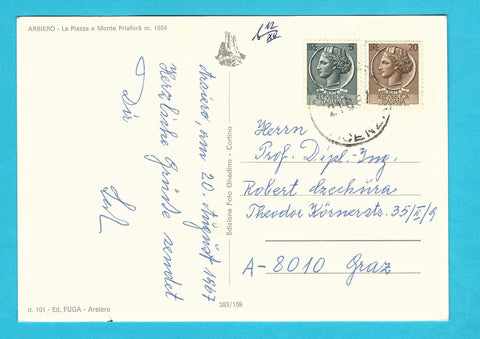 ARSIERO - La Piazza e Monte Priaforà m. 1654
Arsiero, am 20. August 1967
Herzliche Grüße sendet
Dir
Edizione Foto Ghedina - Cortina
5
20
REPUBBLICA
ITALIANA
REPUBBLICA
ITALIANA
Herrn
Prof. Dipl.-Ing.
Robert Czechura
Theodor Körnerstr. 35/II/9
A-8010 Graz
n. 101 - Ed. FUGA - Arsiero
383/159